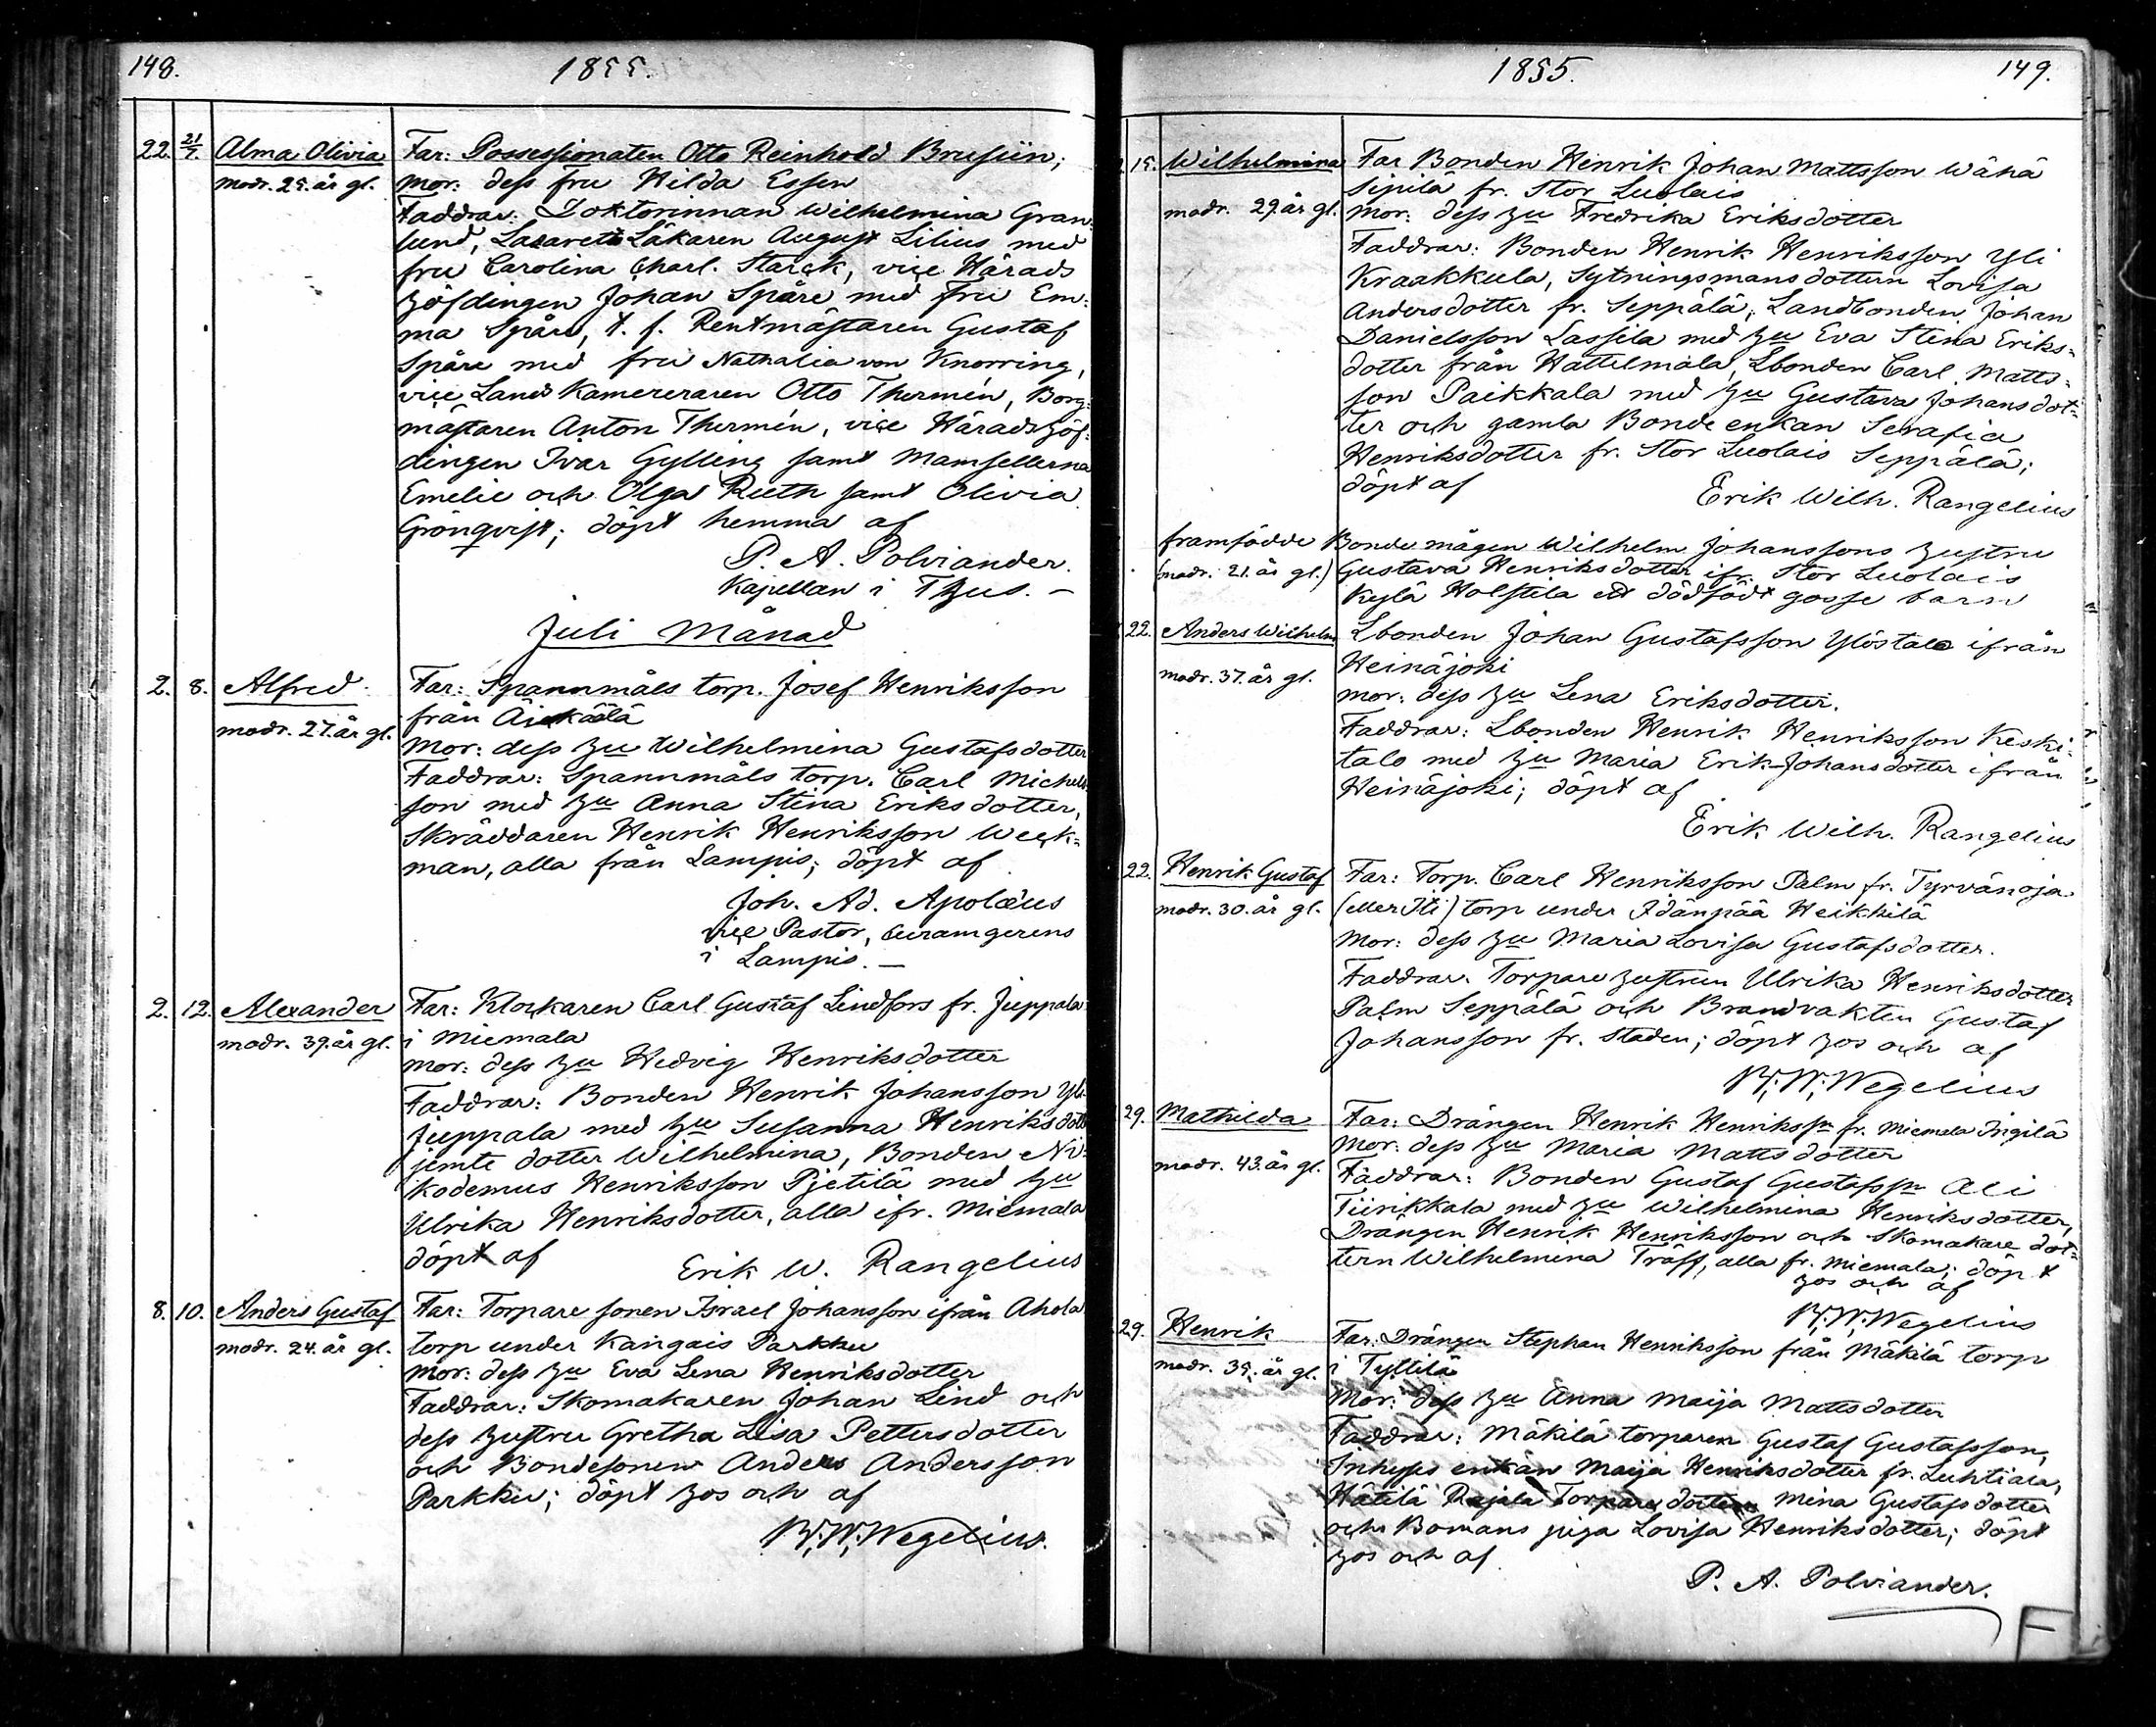 148.
1855.
22. 21/7. Alma Olivia
modr. 25. år gl.
Far: Possessionaten Otto Reinhold Brusiin;
Mor: dess fru Hilda Essen
Faddrar: Doktorinnan Wilhelmina Gran-
lund, Lasaretts Läkaren August Lilius med
fru Carolina Charl. Starck, vice Härads
höfdingen Johan Spåre med fru Em-
ma Spåre, t. f. Rentmästaren Gustaf
Spåre med fru Nathalia von Knorring,
vice Lands Kamereraren Otto Thermén, Borg-
mästaren Anton Thermén, vice Häradshöf-
dingen Ivar Gylling samt Mamsellerna
Emelie och Olga Rueth samt Olivia
Grönqvist; döpt hemma af
P. A. Polviander.
Kapellan i Thus. —
Juli Månad
2. 8. Alfred
modr. 27. år gl.
Far: Spannmåls torp. Josef Henriksson
från
Mor: dess hu Wilhelmina Gustafsdotter
Faddrar: Spannmåls torp. Carl Michels
son med hu Anna Stina Eriksdotter,
Skräddaren Henrik Henriksson Week-
man, alla från Lampis; döpt af
Joh. Ad. Apolæus
vice Pastor, curamgerens
i Lampis. —
2. 12. Alexander
modr. 39. år gl.
Far: Klockaren Carl Gustaf Lindfors fr. Juppala
i Miemala
Mor: dess hu Hedvig Henriksdotter
Faddrar: Bonden Henrik Johansson Yli-
Juppala med hu Susanna Henriksdott
jemte dotter Wilhelmina, Bonden Ni-
kodemus Henriksson Pjetilä med hu
Ulrika Henriksdotter, alla ifr. Miemala
döpt af
Erik W. Rangelius
8. 10. Anders Gustaf
modr. 24. år gl.
Far: Torpare sonen Israel Johansson ifrån Ahola
torp under Kangais Parkku
Mor: dess hu Eva Lena Henriksdotter
Faddrar: Skomakaren Johan Lind och
dess hustru Gretha Lisa Pettersdotter
och Bondesonen Anders Andersson
Parkku; döpt hos och af
W. W. Wegelius.
1855.
149.
15. Wilhelmina
modr. 29. år gl.
Far Bonden Henrik Johan Mattsson Wähä
Sipilä fr. Stor Luolais
Mor: dess hu Fredrika Eriksdotter
Faddrar: Bonden Henrik Henriksson Yli
Kraakkula, Sytningsmans dottern Lovisa
Andersdotter fr. Seppälä, Landbonden Johan
Danielsson Lassila med hu Eva Stina Eriks-
dotter från Hattelmala, Lbonden Carl Matts-
son Paikkala med hu Gustava Johansdot-
ter och gamla Bonde enkan Serafia
Henriksdotter fr. Stor Luolais Seppälä;
döpt af
Erik Wilh. Rangelius
framfödde Bonde mågen Wilhelm Johanssons hustru
(modr. 21. år gl.) Gustava Henriksdotter ifr. Stor Luolais
Kylä Holstila ett dödfödt gosse barn
22. Anders Wilhelm
modr. 37. år gl.
Lbonden Johan Gustafsson Ylöstalo ifrån
Heinäjoki
Mor: dess hu Lena Eriksdotter.
Faddrar: Lbonden Henrik Henriksson Keski-
talo med hu Maria Erik-Johansdotter ifrån
Heinäjoki; döpt af
Erik Wilh. Rangelius
22. Henrik Gustaf
modr. 30. år gl.
Far: Torp. Carl Henriksson Palm fr. Tyrvänoja
(eller Iti) torp under Idänpää Heikkilä
Mor: dess hu Maria Lovisa Gustafsdotter.
Faddrar. Torpare hustrun Ulrika Henriksdotter
Palm Seppälä och Brandvakten Gustaf
Johansson fr. Staden; döpt hos och af
W. W. Wegelius
29. Mathilda
modr. 43. år gl.
Far: Drängen Henrik Henrikssn fr. Miemala Ingilä
Mor: dess hu Maria Mattsdotter
Faddrar: Bonden Gustaf Gustafssn Ali
Tiirikkala med hu Wilhelmina Henriksdotter,
Drängen Henrik Henriksson och Skomakare dot-
tern Wilhelmina Träff, alla fr. Miemala; döpt
hos och af
W. W. Wegelius
29. Henrik
modr. 35. år gl.
Far: Drängen Stephan Henriksson från Mäkilä torp
i Tyllilä
Mor: dess hu Anna Maija Mattsdotter
Faddrar: Mäkilä torparen Gustaf Gustafsson,
Inhyses enkan Maija Henriksdotter fr. Luhtiala,
Hätilä Rajala Torpare dottern Mina Gustafsdotter
och Bomans piga Lovisa Henriksdotter; döpt
hos och af
P. A. Polviander.